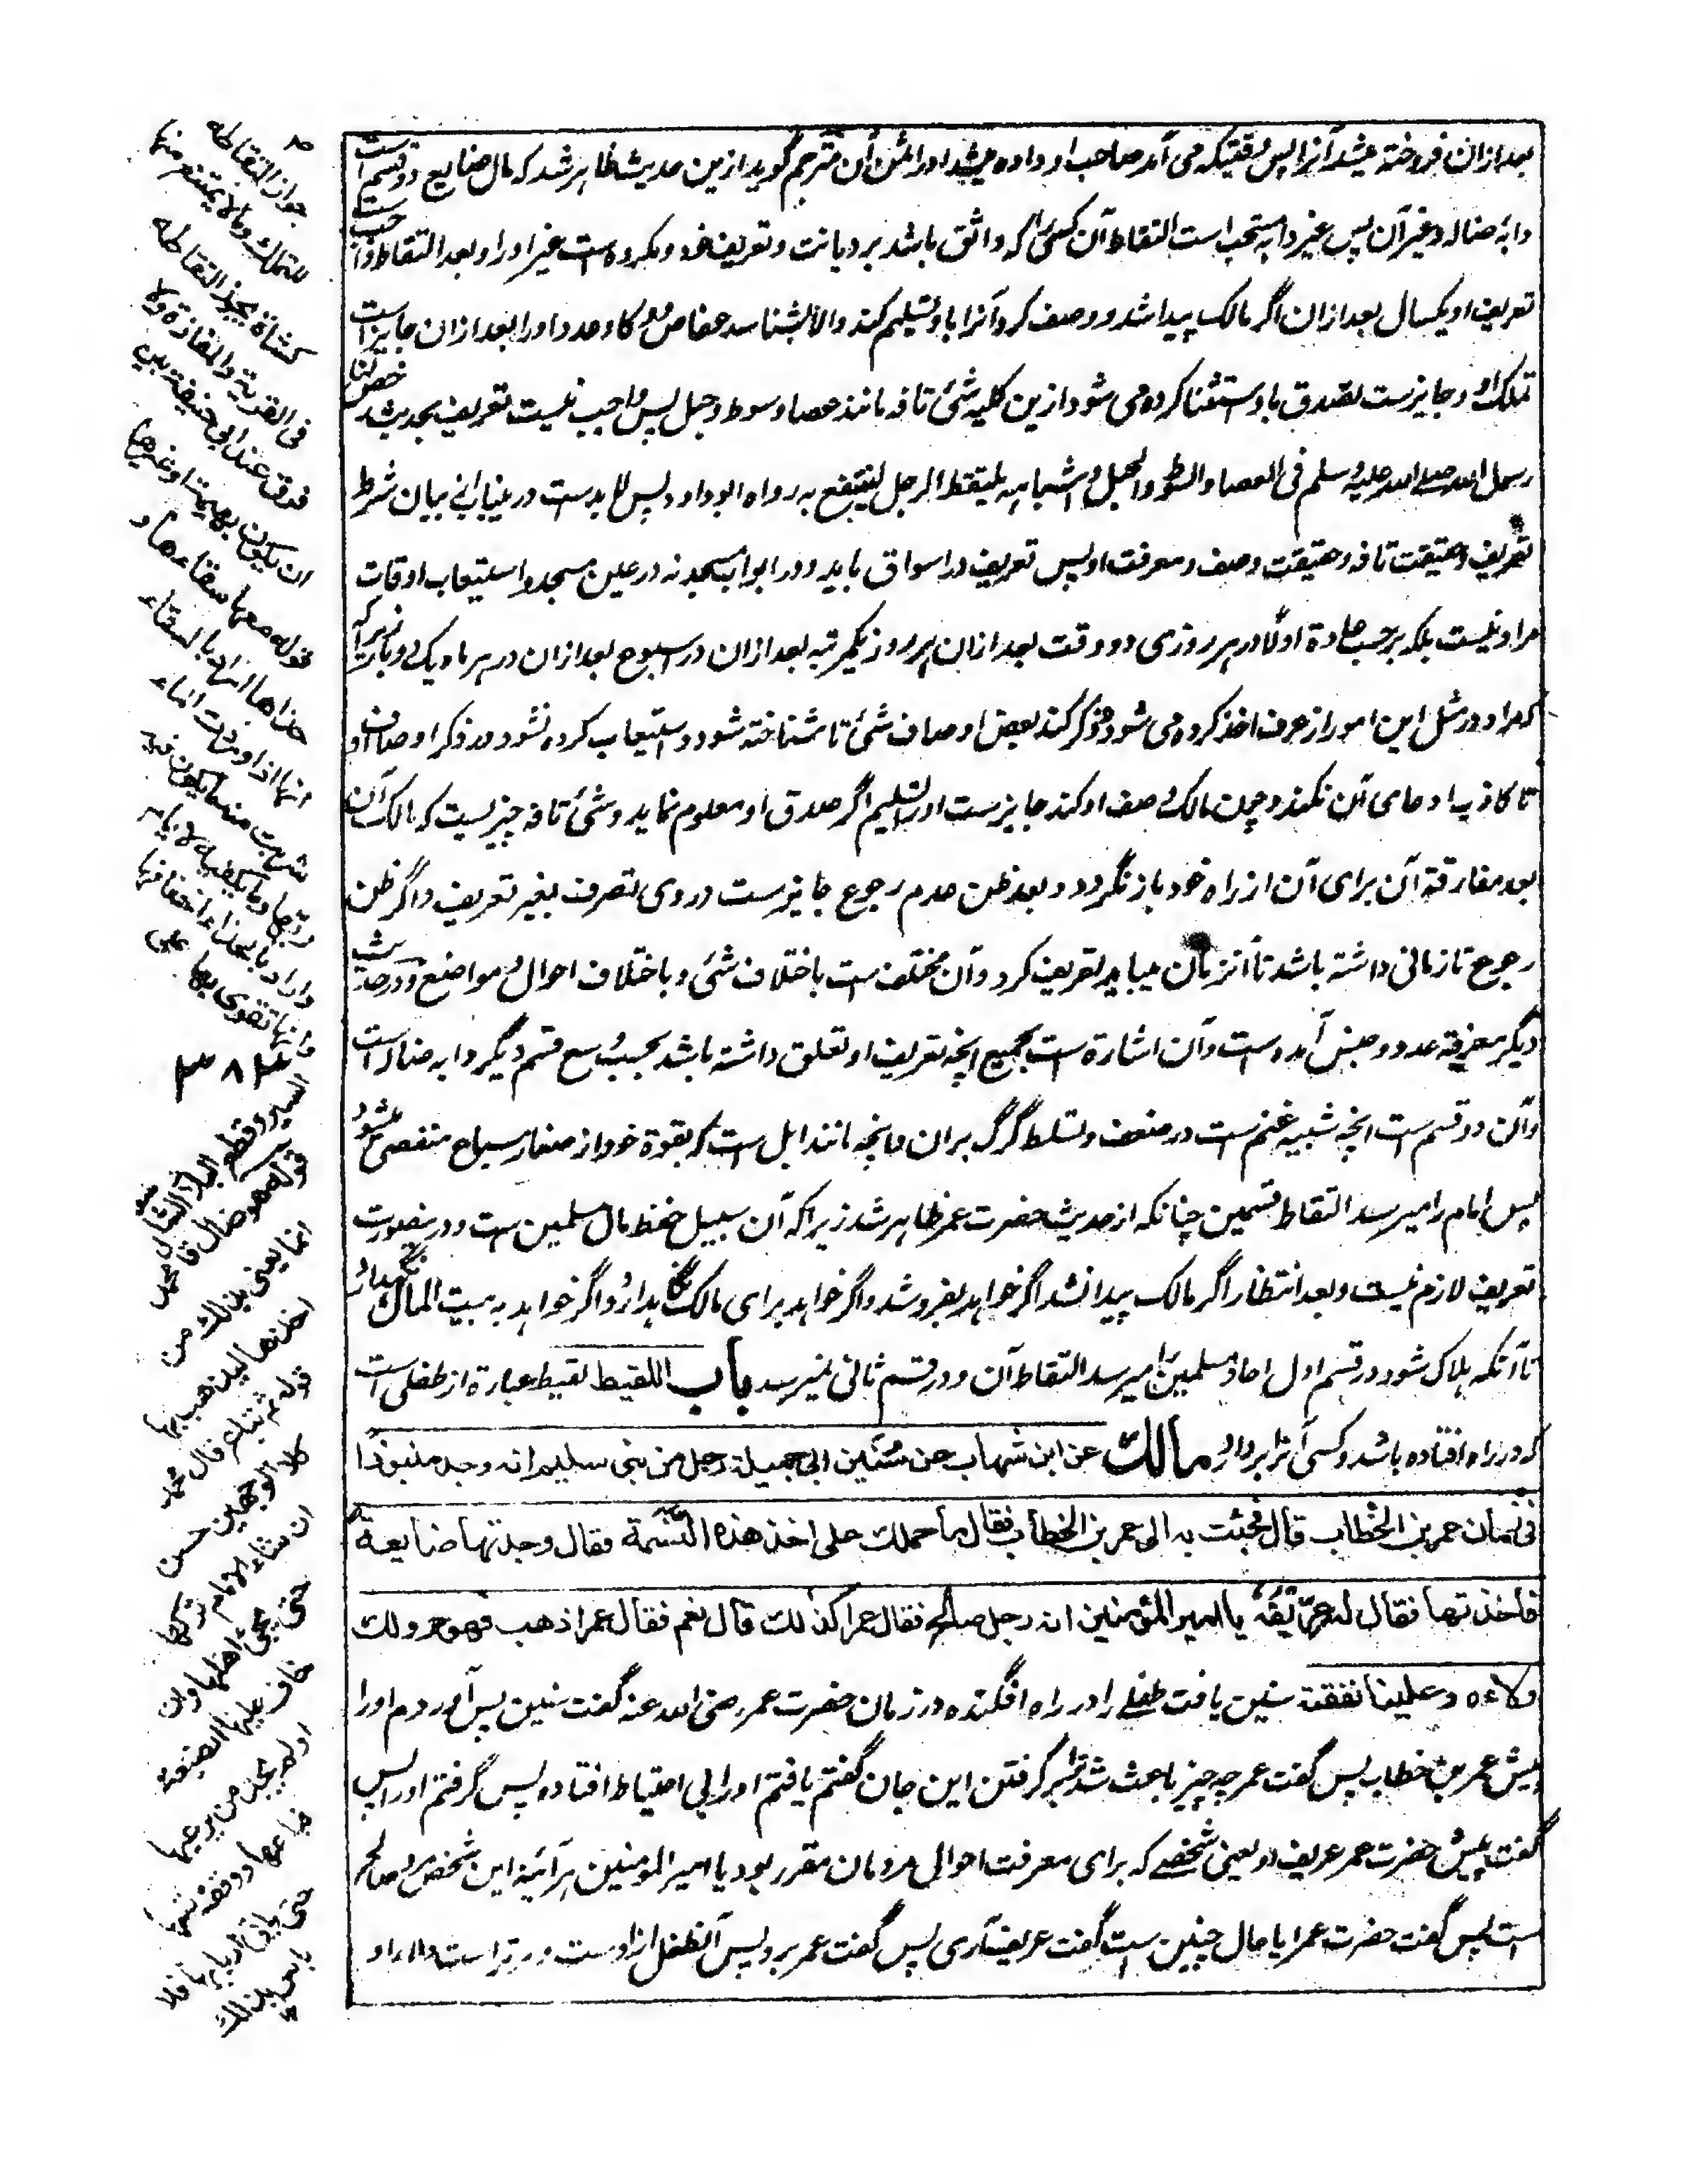 بعد ازان فروخته میشد آنرا پس وقتیکه می آمد صاحب او داده میشد او را ثمن آن مترجم گوید ازین حدیث ظاهر شد که مال ضایع دو قسم است
دابه ضاله و غیر آن پس غیر دابه مستحب است التقاط آن کسی را که واثق باشد بر دیانت و تعریف خود و مکروه است غیر او را و بعد التقاط واجب است
تعریف او یکسال بعد ازان اگر مالک پیدا شد و وصف کرد آنرا باو تسلیم کند والا بشناسد عفاص و وکا و عدد او را بعد ازان جایز است
تملک او و جایزست تصدق باو و استثنا کرده می شود ازین کلیه شئ تافه مانند عصا و سوط و حبل پس واجب نیست تعریف بحدیث رخص لنا
رسول الله صلے الله علیه وسلم فی العصا والسوط والحبل و اشباهه یلتقطه الرجل ینتفع به رواه ابو داود پس لابدست درینباب از بیان شرط
تعریف و حقیقت تافه و حقیقت وصف و معرفت او پس تعریف در اسواق باید و در ابواب مسجد نه در عین مسجد و استیعاب اوقات
مراد نیست بلکه بر حسب عادة اولا در هر روزی دو وقت بعد ازان هر روز یکمرتبه بعد ازان در اسبوع بعد ازان در هر ماه یک دو بار زیراکه
که مراد در مثل این امور از عرف اخذ کرده می شود و ذکر کند بعض اوصاف شئ تا شناخته شود و استیعاب کرده نشود در ذکر اوصاف او
تا کاذب ادعای آن نکند و چون مالک وصف او کند جایزست او را تسلیم اگر صدق او معلوم نماید و شئ تافه چیزیست که مالک آن
بعد مفارقة آن برای آن از راه خود باز نگردد و بعد ظن عدم رجوع جایزست در وی تصرف بغیر تعریف و اگر ظن
رجوع تا زمانی داشته باشد تا آنزمان میباید تعریف کرد و آن مختلف ست باختلاف شئ و باختلاف احوال و مواضع و در حدیث
دیگر معرفة عدد و جنس آمده است و آن اشارة ست بجمیع انچه تعریف او تعلق داشته باشد بحسب وسع قسم دیگر دابه ضاله است
و آن دو قسم ست انچه شبیه غنم ست در ضعف و تسلط گرگ بران و انچه مانند ابل ست که بقوة خود از صغار سباع متفصی میشود
پس امام را میرسد التقاط قسمین چنانکه از حدیث حضرت عمر ظاهر شد زیراکه آن سبیل حفظ مال مسلمین ست و درینصورت
تعریف لازم نیست و بعد انتظار اگر مالک پیدا نشد اگر خواهد بفروشد و اگر خواهد برای مالک نگاهدارد و اگر خواهد به بیت المال نگاهدارد
تا آنکه هلاک شود و در قسم اول احاد مسلمین را میرسد التقاط آن و در قسم ثانی نمیرسد باب اللقیط لقیط عبارة از طفلی است
که در راه افتاده باشد و کسی آنرا بردارد مالك عن ابن شهاب عن سنین ابی جمیلة رجل من بنی سلیم انه وجد منبوذا
فی زمان عمر بن الخطاب قال فجئت به الی عمر بن الخطاب فقال ما حملك علی اخذ هذه النسمة فقال وجدتها ضایعة
فاخذتها فقال له عریفه یا امیر المؤمنین انه رجل صالح فقال عمر اكذلك قال نعم فقال عمر اذهب فهو حر ولك
ولاءه وعلینا نفقته سنین یافت طفلے را در راه افگنده در زمان حضرت عمر رضی الله عنه گفت سنین پس آوردم او را
پیش عمر بن خطاب پس گفت عمر چه چیز باعث شد ترا بر گرفتن این جان گفتم یافتم او را بی احتیاط افتاده پس گرفتم او را پس
گفت پیش حضرت عمر عریف او یعنی شخصے که برای معرفت احوال مردمان مقرر بود یا امیر المومنین هر آئینه این شخص مرد صالح
است پس گفت حضرت عمر ایا حال چنین است گفت عریف آری پس گفت عمر برو پس آنطفل ازادست و مر تراست ولاء او
جواز التقاطه
للتملك وما لا یمتنع منها
كشاة یجوز التقاطه
فی القریة والمفازة ولا
فرق عند ابی حنیفة بین
ان یكون بهیمة او غیرها
قوله معها سقاءها و
حذاءها اراد بالسقاء
انها اذا وردت الماء
شربت منه ما یكون فیه
ریها
واراد بالحذاء اخفافها
فانها تقوی بها علی
السیر وقطع البلاد
قوله فهو ضال قال محمد
انما یعنی بذلك من
اخذها لیذهب بها
قوله ثم تبتك قال محمد
كلا الوجهین حسن
ان شاء الامام تركها
حتی یجئ اهلها وان
خاف علیها الضیعة
او لم یجد من یرعیها
باعها ووقف ثمنها
حتی یاتی اربابها فلا
باس بذلك